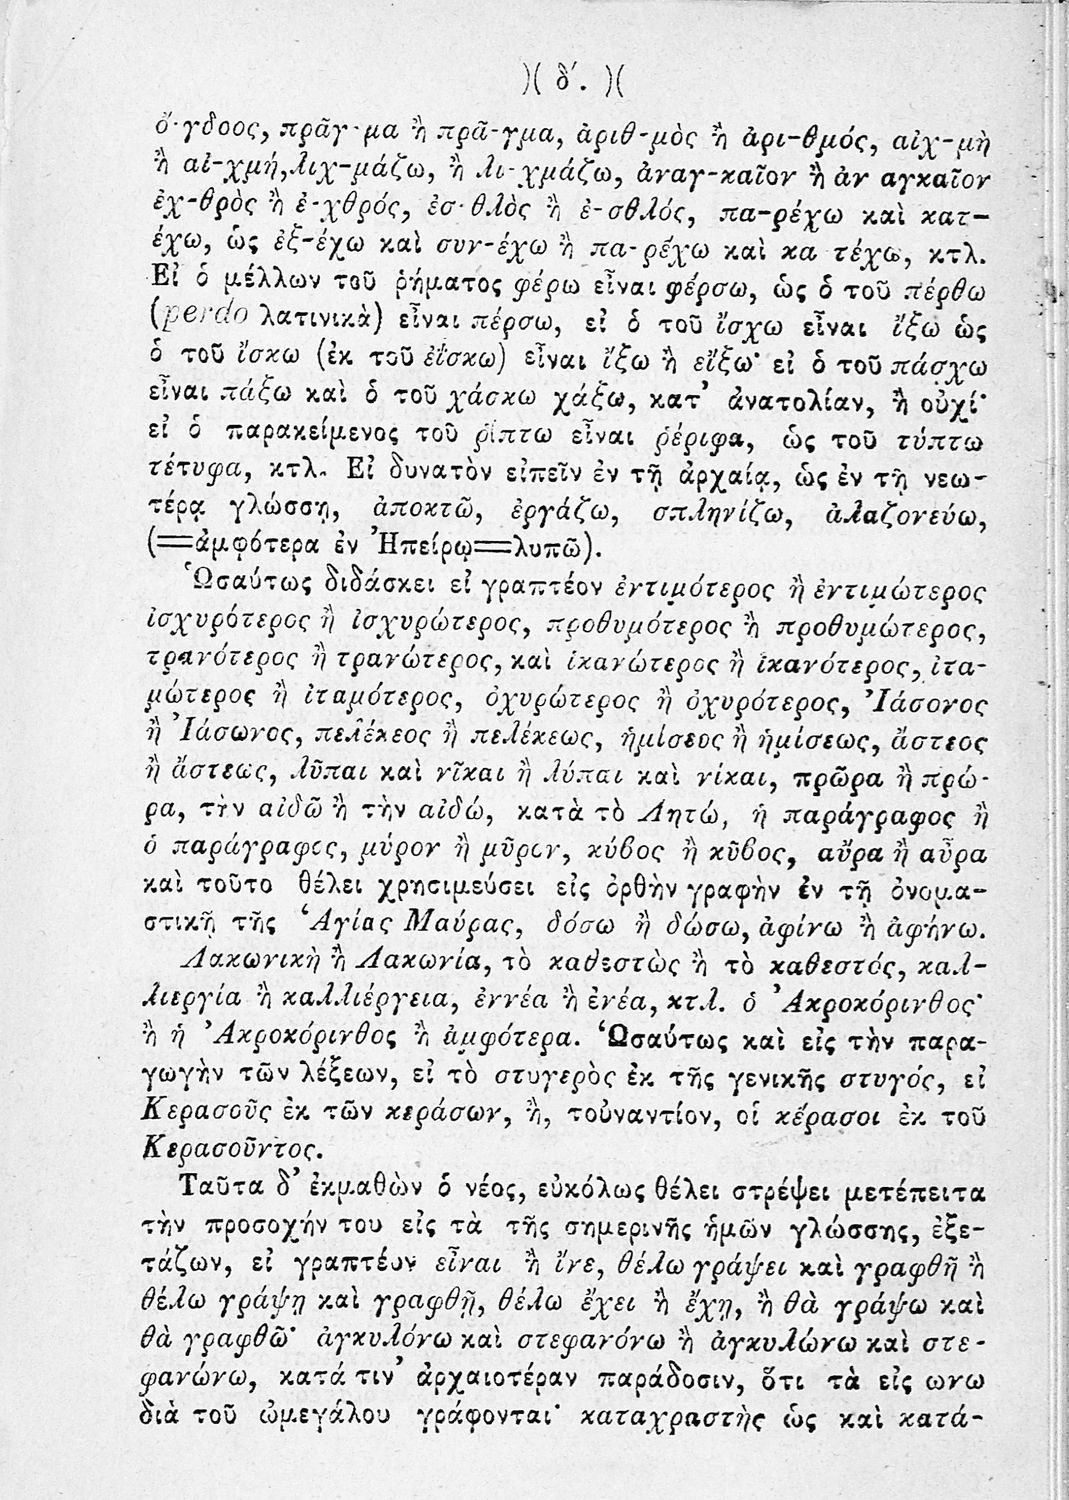 )( δ΄. )(
ὄ-γδοος, πρᾶγ-μα ἢ πρᾶ-γμα, ἀριθ-μὸς ἢ ἀρι-θμός, αἰχ-μὴ
ἢ αἰ-χμή, λιχ-μάζω, ἢ λι-χμάζω, ἀναγ-καῖον ἢ ἀν αγκαῖον
ἐχ-θρὸς ἢ ἐ-χθρός, ἐσ-θλὸς ἢ ἐ-σθλός, πα-ρέχω καὶ κατ-
έχω, ὡς ἐξ-έχω καὶ συν-έχω ἢ πα-ρέχω καὶ κα τέχω, κτλ.
Εἰ ὁ μέλλων τοῦ ῥήματος φέρω εἶναι φέρσω, ὡς ὁ τοῦ πέρθω
(perdo λατινικὰ) εἶναι πέρσω, εἰ ὁ τοῦ ἴσχω εἶναι ἴξω ὡς
ὁ τοῦ ἴσκω (ἐκ τοῦ ἐΐσκω) εἶναι ἴξω ἢ εἴξω· εἰ ὁ τοῦ πάσχω
εἶναι πάξω καὶ ὁ τοῦ χάσκω χάξω, κατ’ ἀνατολίαν, ἢ οὐχί·
εἰ ὁ παρακείμενος τοῦ ῥίπτω εἶναι ῥέριφα, ὡς τοῦ τύπτω
τέτυφα, κτλ. Εἰ δυνατὸν εἰπεῖν ἐν τῇ ἀρχαίᾳ, ὡς ἐν τῇ νεω-
τέρᾳ γλώσσῃ, ἀποκτῶ, ἐργάζω, σπληνίζω, ἀλαζονεύω,
(=ἀμφότερα ἐν Ἠπείρῳ=λυπῶ).
Ὡσαύτως διδάσκει εἰ γραπτέον ἐντιμότερος ἢ ἐντιμώτερος
ἰσχυρότερος ἢ ἰσχυρώτερος, προθυμότερος ἢ προθυμώτερος,
τρανότερος ἢ τρανώτερος, καὶ ἱκανώτερος ἢ ἱκανότερος, ἰτα-
μώτερος ἢ ἰταμότερος, ὀχυρώτερος ἢ ὀχυρότερος, Ἰάσονος
ἢ Ἰάσωνος, πελέκεος ἢ πελέκεως, ἡμίσεος ἢ ἡμίσεως, ἄστεος
ἢ ἄστεως, λῦπαι καὶ νῖκαι ἢ λύπαι καὶ νίκαι, πρῶρα ἢ πρώ-
ρα, τὴν αἰδῶ ἢ τὴν αἰδώ, κατὰ τὸ Λητώ, ἡ παράγραφος ἢ
ὁ παράγραφος, μύρον ἢ μῦρον, κύβος ἢ κῦβος, αὔρα ἢ αὖρα
καὶ τοῦτο θέλει χρησιμεύσει εἰς ὀρθὴν γραφὴν ἐν τῇ ὀνομα-
στικῇ τῆς Ἁγίας Μαύρας, δόσω ἢ δώσω, ἀφίνω ἢ ἀφήνω.
Λακωνικὴ ἢ Λακωνία, τὸ καθεστὼς ἢ τὸ καθεστός, καλ-
λιεργία ἢ καλλιέργεια, ἐννέα ἢ ἐνέα, κτλ. ὁ Ἀκροκόρινθος·
ἢ ἡ Ἀκροκόρινθος ἢ ἀμφότερα. Ὡσαύτως καὶ εἰς τὴν παρα-
γωγὴν τῶν λέξεων, εἰ τὸ στυγερὸς ἐκ τῆς γενικῆς στυγός, εἰ
Κερασοῦς ἐκ τῶν κεράσων, ἢ, τοὐναντίον, οἱ κέρασοι ἐκ τοῦ
Κερασοῦντος.
Ταῦτα δ’ ἐκμαθὼν ὁ νέος, εὐκόλως θέλει στρέψει μετέπειτα
τὴν προσοχήν του εἰς τὰ τῆς σημερινῆς ἡμῶν γλώσσης, ἐξε-
τάζων, εἰ γραπτέον εἶναι ἢ ἴνε, θέλω γράψει καὶ γραφθῆ ἢ
θέλω γράψῃ καὶ γραφθῇ, θέλω ἔχει ἢ ἔχῃ, ἢ θὰ γράψω καὶ
θὰ γραφθῶ· ἀγκυλόνω καὶ στεφανόνω ἢ ἀγκυλώνω καὶ στε-
φανώνω, κατά τιν’ ἀρχαιοτέραν παράδοσιν, ὅτι τὰ εἰς ωνω
διὰ τοῦ ὠμεγάλου γράφονται· καταχραστὴς ὡς καὶ κατά-